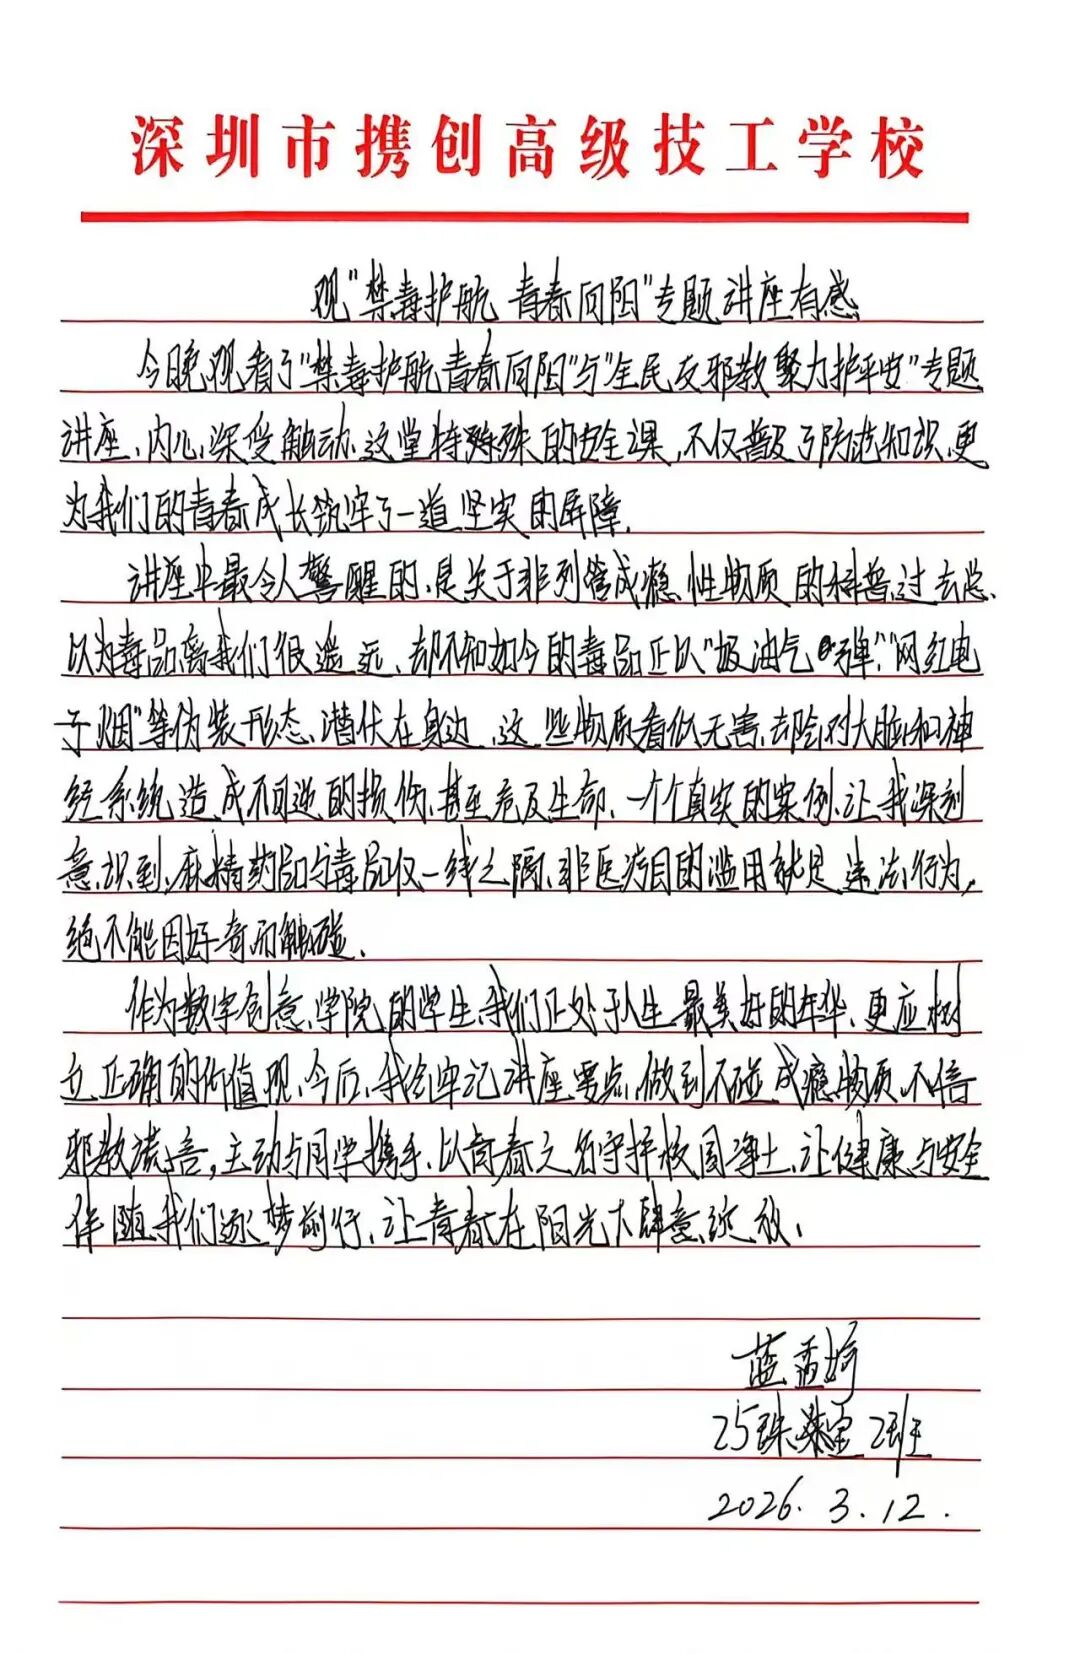 深圳市携创高级技工学校
观"禁毒护航 青春向阳"专题讲座有感
今晚观看了"禁毒护航青春向阳"与"全民反邪教聚力护平安"专题
讲座,内心深受触动.这堂特殊的安全课,不仅普及了防范知识,更
为我们的青春成长筑牢了一道坚实的屏障.
讲座中最令人警醒的,是关于非列管成瘾性物质的科普,过去总
以为毒品离我们很遥远,却不知如今的毒品正以"极油气弹","网红电
子烟"等伪装形态,潜伏在身边.这些物质看似无害,却会对大脑和神
经系统造成不可逆的损伤,甚至危及生命.一个个真实的案例,让我深刻
意识到,麻精药品与毒品仅一线之隔,非医疗目的滥用就是违法行为,
绝不能因好奇而触碰.
作为数字创意学院的学生,我们正处于人生最美好的年华,更应树
立正确的价值观,今后,我会牢记讲座要点,做到不碰成瘾物质,不信
邪教谎言,主动与同学携手,以青春之名守护校园净土,让健康与安全
伴随我们逐梦前行,让青春在阳光下肆意绽放.
蓝孟婷
25珠宝2班
2026.3.12.